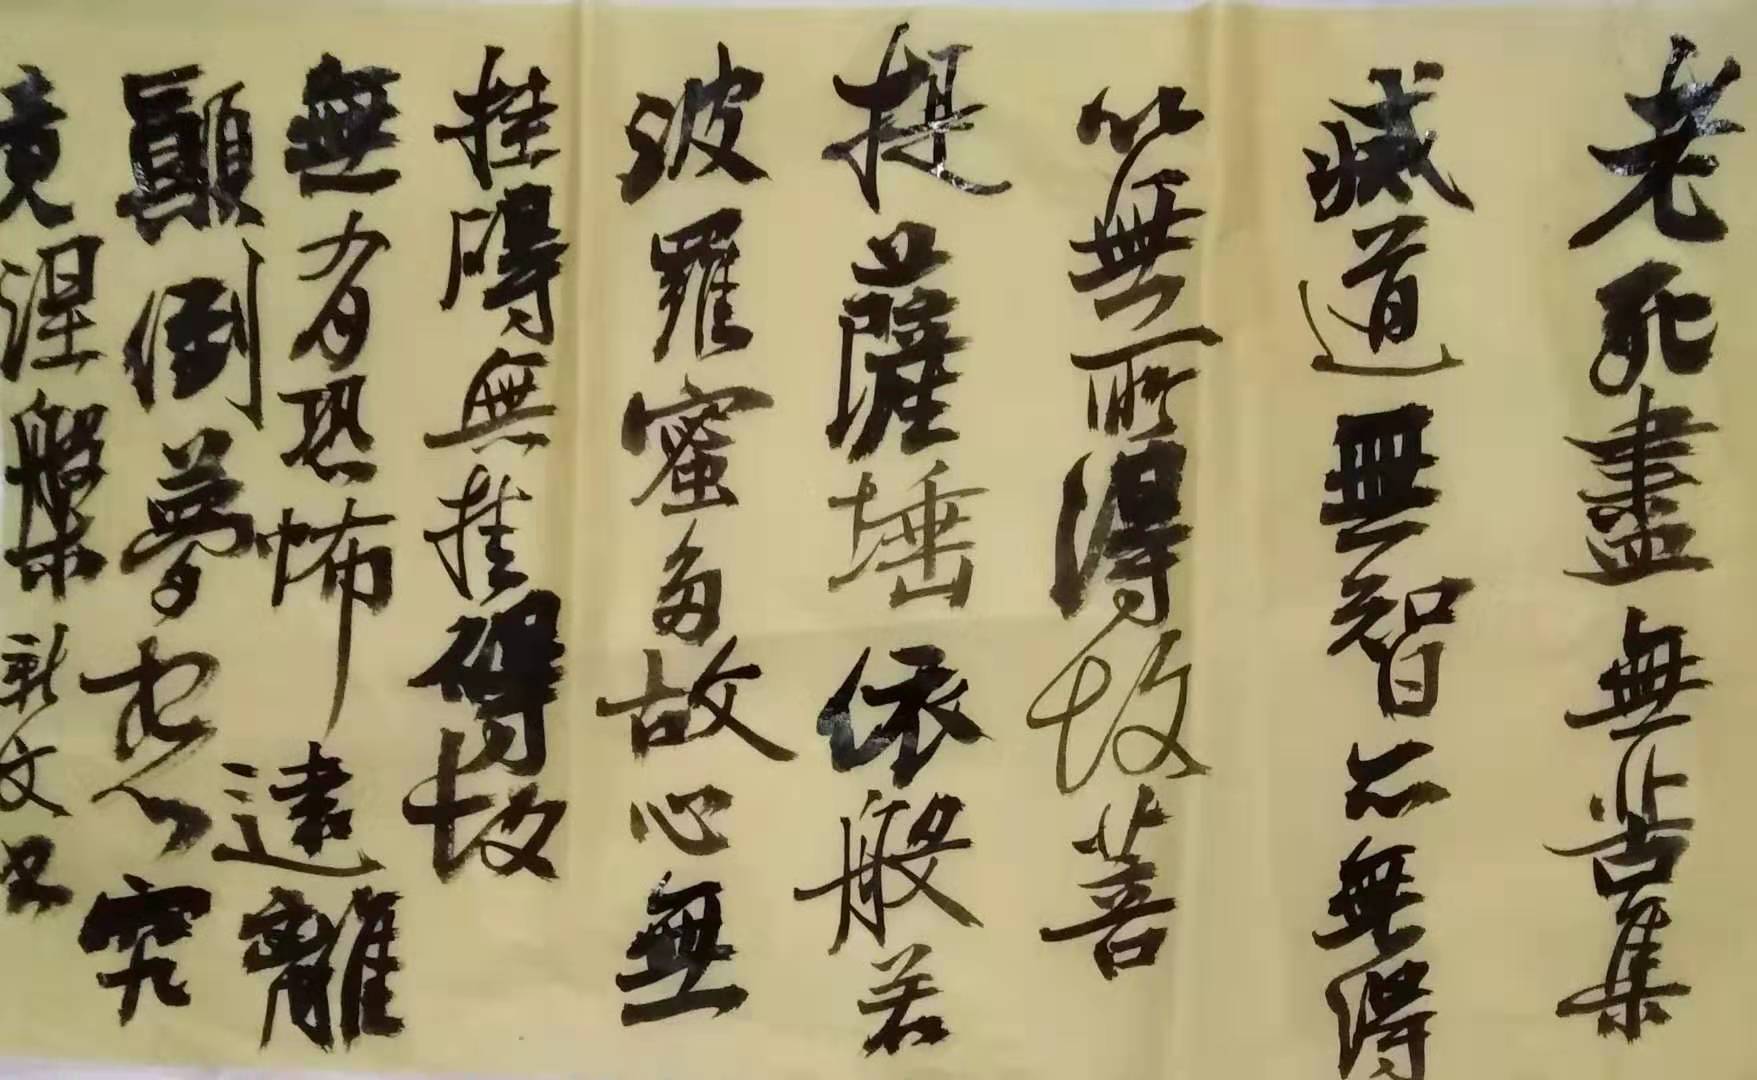 老死盡無苦集
滅道無智亦無得
以無所得故菩
提薩埵依般若
波羅蜜多故心無
挂碍無挂碍故
無有恐怖遠離
顛倒夢想究
竟涅槃